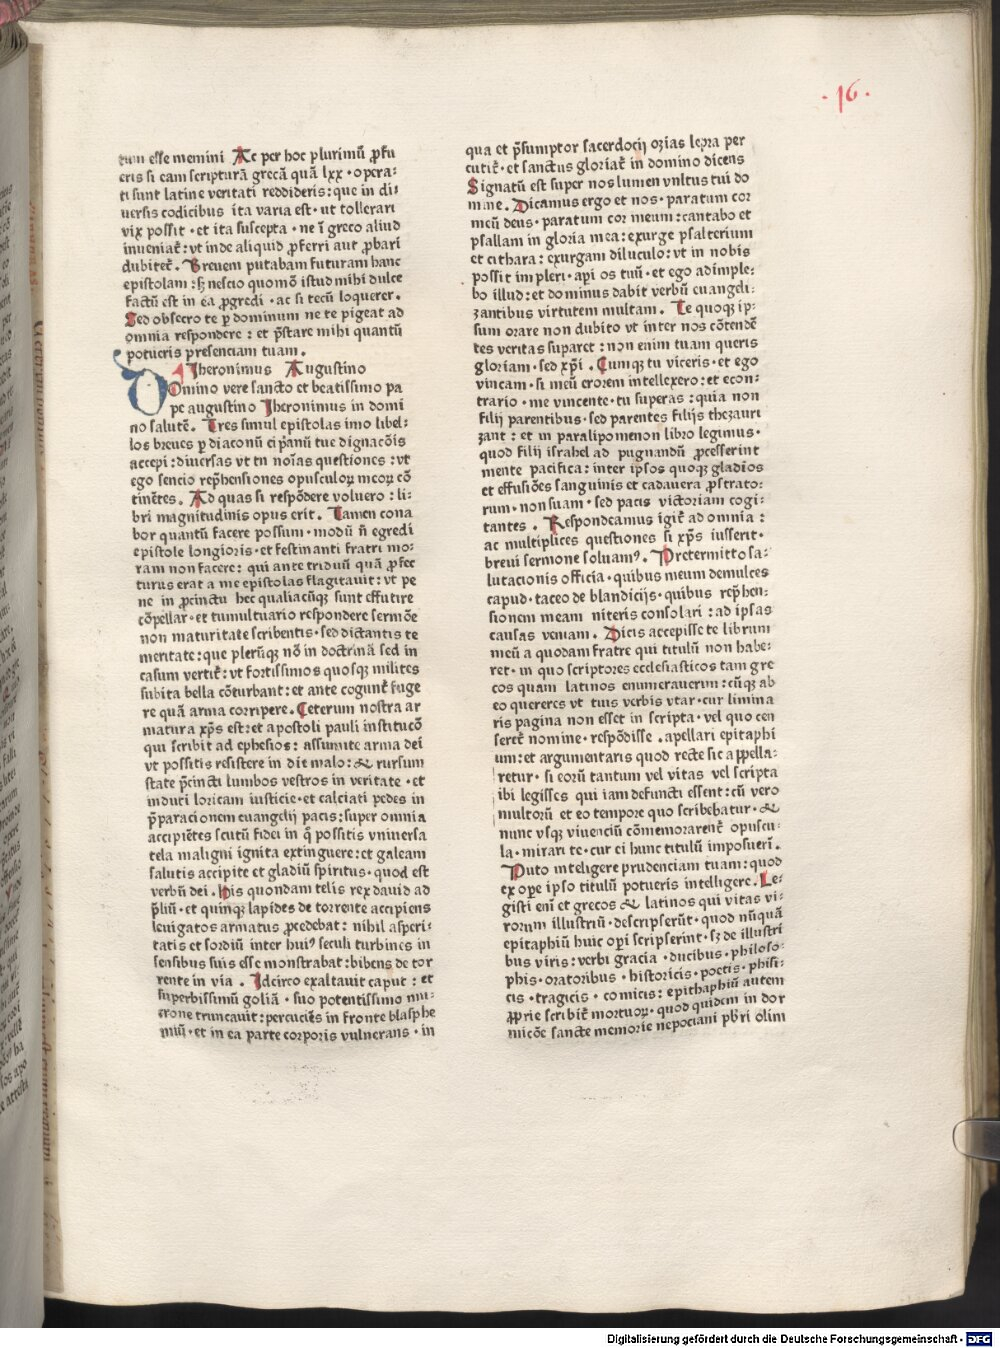 · 16 ·
tum esse memini Ac per hoc plurimū ꝓfu
eris si eam scripturā grecā quā lxx · opera-
ti sunt latine veritati reddideris : que in di-
uersis codicibus ita varia est · ut tollerari
vix possit · et ita suscepta · ne ī greco aliud
inueniat᷑ : vt inde aliquid ꝓferri aut ꝓbari
dubitet᷑ . Breuem putabam futuram hanc
epistolam : sꝫ nescio quomō istud mihi dulce
factū est in ea ꝓgredi · ac si tecū loquerer .
Sed obsecro te ꝑ dominum ne te pigeat ad
omnia respondere : et p̄stare mihi quantū
potueris presenciam tuam .
Iheronimus Augustino
Domino vere sancto et beatissimo pa
pe augustino Iheronimus in domi
no salutē . Tres simul epistolas imo libel-
los breues ꝑ diaconū cipanū tue dignacōis
accepi : diuersas vt tu noīas questiones : vt
ego sencio rep̄hensiones opusculoꝝ meoꝝ cō
tinētes . Ad quas si respōdere voluero : li-
bri magnitudinis opus erit . Tamen cona
bor quantū facere possum · modū n̄ egredi
epistole longioris · et festinanti fratri mo-
ram non facere : qui ante triduū quā ꝓfec
turus erat a me epistolas flagitauit : vt pe
ne in ꝓcinctu hec qualiacūqꝫ sunt effutire
cōpellar · et tumultuario respondere sermōe
non maturitate scribentis · sed dictantis te
meritate : que plerūqꝫ nō in doctrinā sed in
casum vertit᷑ : vt fortissimos quosqꝫ milites
subita bella cōturbant : et ante cogunt᷑ fuge
re quā arma corripere . Ceterum nostra ar
matura xp̄s est : et apostoli pauli institucō
qui scribit ad ephesios : assumite arma dei
vt possitis resistere in die malo : & rursum
state p̄cincti lumbos vestros in veritate · et
induti loricam iusticie · et calciati pedes in
p̄paracionem euangelij pacis : super omnia
accipiētes scutū fidei in q̄ possitis vniuersa
tela maligni ignita extinguere : et galeam
salutis accipite et gladiū spiritus · quod est
verbū dei . His quondam telis rex dauid ad
p̄liū · et quinqꝫ lapides de torrente accipiens
leuigatos armatus ꝓcedebat : nihil asperi-
tatis et sordiū inter huiꝰ seculi turbines in
sensibus suis esse monstrabat : bibens de tor
rente in via . Idcirco exaltauit caput : et
superbissimū goliā · suo potentissimo mu-
crone truncauit : percuciēs in fronte blasphe
miū · et in ea parte corporis vulnerans · in
qua et p̄sumptor sacerdocij ozias lepra per
cutit᷑ · et sanctus gloriat᷑ in domino dicens
Signatū est super nos lumen vultus tui do
mine . Dicamus ergo et nos · paratum cor
meū deus · paratum cor meum : cantabo et
psallam in gloria mea : exurge psalterium
et cithara : exurgam diluculo : vt in nobis
possit impleri · api os tuū · et ego adimple-
bo illud : et dominus dabit verbū euangeli-
zantibus virtutem multam . Te quoqꝫ ip-
sum orare non dubito vt inter nos cōtendē
tes veritas superet : non enim tuam queris
gloriam · sed xp̄i . Cumqꝫ tu viceris · et ego
vincam · si meū erorem intellexero : et econ-
trario · me vincente · tu superas : quia non
filij parentibus · sed parentes filijs thezauri
zant : et in paralipomenon libro legimus ·
quod filij israhel ad pugnandū ꝓcesserint
mente pacifica : inter ipsos quoqꝫ gladios
et effusiōes sanguinis et cadauera ꝓstrato-
rum · non suam · sed pacis victoriam cogi-
tantes . Respondeamus igit᷑ ad omnia :
ac multiplices questiones si xp̄s iusserit ·
breui sermone soluamꝰ . Pretermitto sa-
lutacionis officia · quibus meum demulces
capud · taceo de blandicijs · quibus rep̄hen-
sionem meam niteris consolari : ad ipsas
causas veniam . Dicis accepisse te librum
meū a quodam fratre qui titulū non habe-
ret · in quo scriptores ecclesiasticos tam gre
cos quam latinos enumerauerim : cūqꝫ ab
eo quereres vt tuis verbis vtar · cur limina
ris pagina non esset in scripta · vel quo cen
seret᷑ nomine · respōdisse . apellari epitaphi
um : et argumentaris quod recte sic appella-
retur · si eorū tantum vel vitas vel scripta
ibi legisses qui iam defuncti essent : cū vero
multorū et eo tempore quo scribebatur · &
nunc vsqꝫ viuenciū cōmemorarent᷑ opuscu-
la · mirari te · cur ei hunc titulū imposueri᷑ .
Puto inteligere prudenciam tuam : quod
ex oꝑe ipso titulū potueris intelligere . Le-
gisti eni᷑ et grecos & latinos qui vitas vi-
rorum illustriū · descripserūt · quod nūquā
epitaphiū huic oꝑi scripserint · sꝫ de illustri
bus viris : verbi gracia · ducibus · philoso-
phis · oratoribus · historicis · poetis · phisi-
cis · tragicis · comicis : epithaphiū autem
ꝓprie scribit᷑ mortuoꝝ · quod quidem in dor
micōe sancte memorie nepociani pb̄ri olim